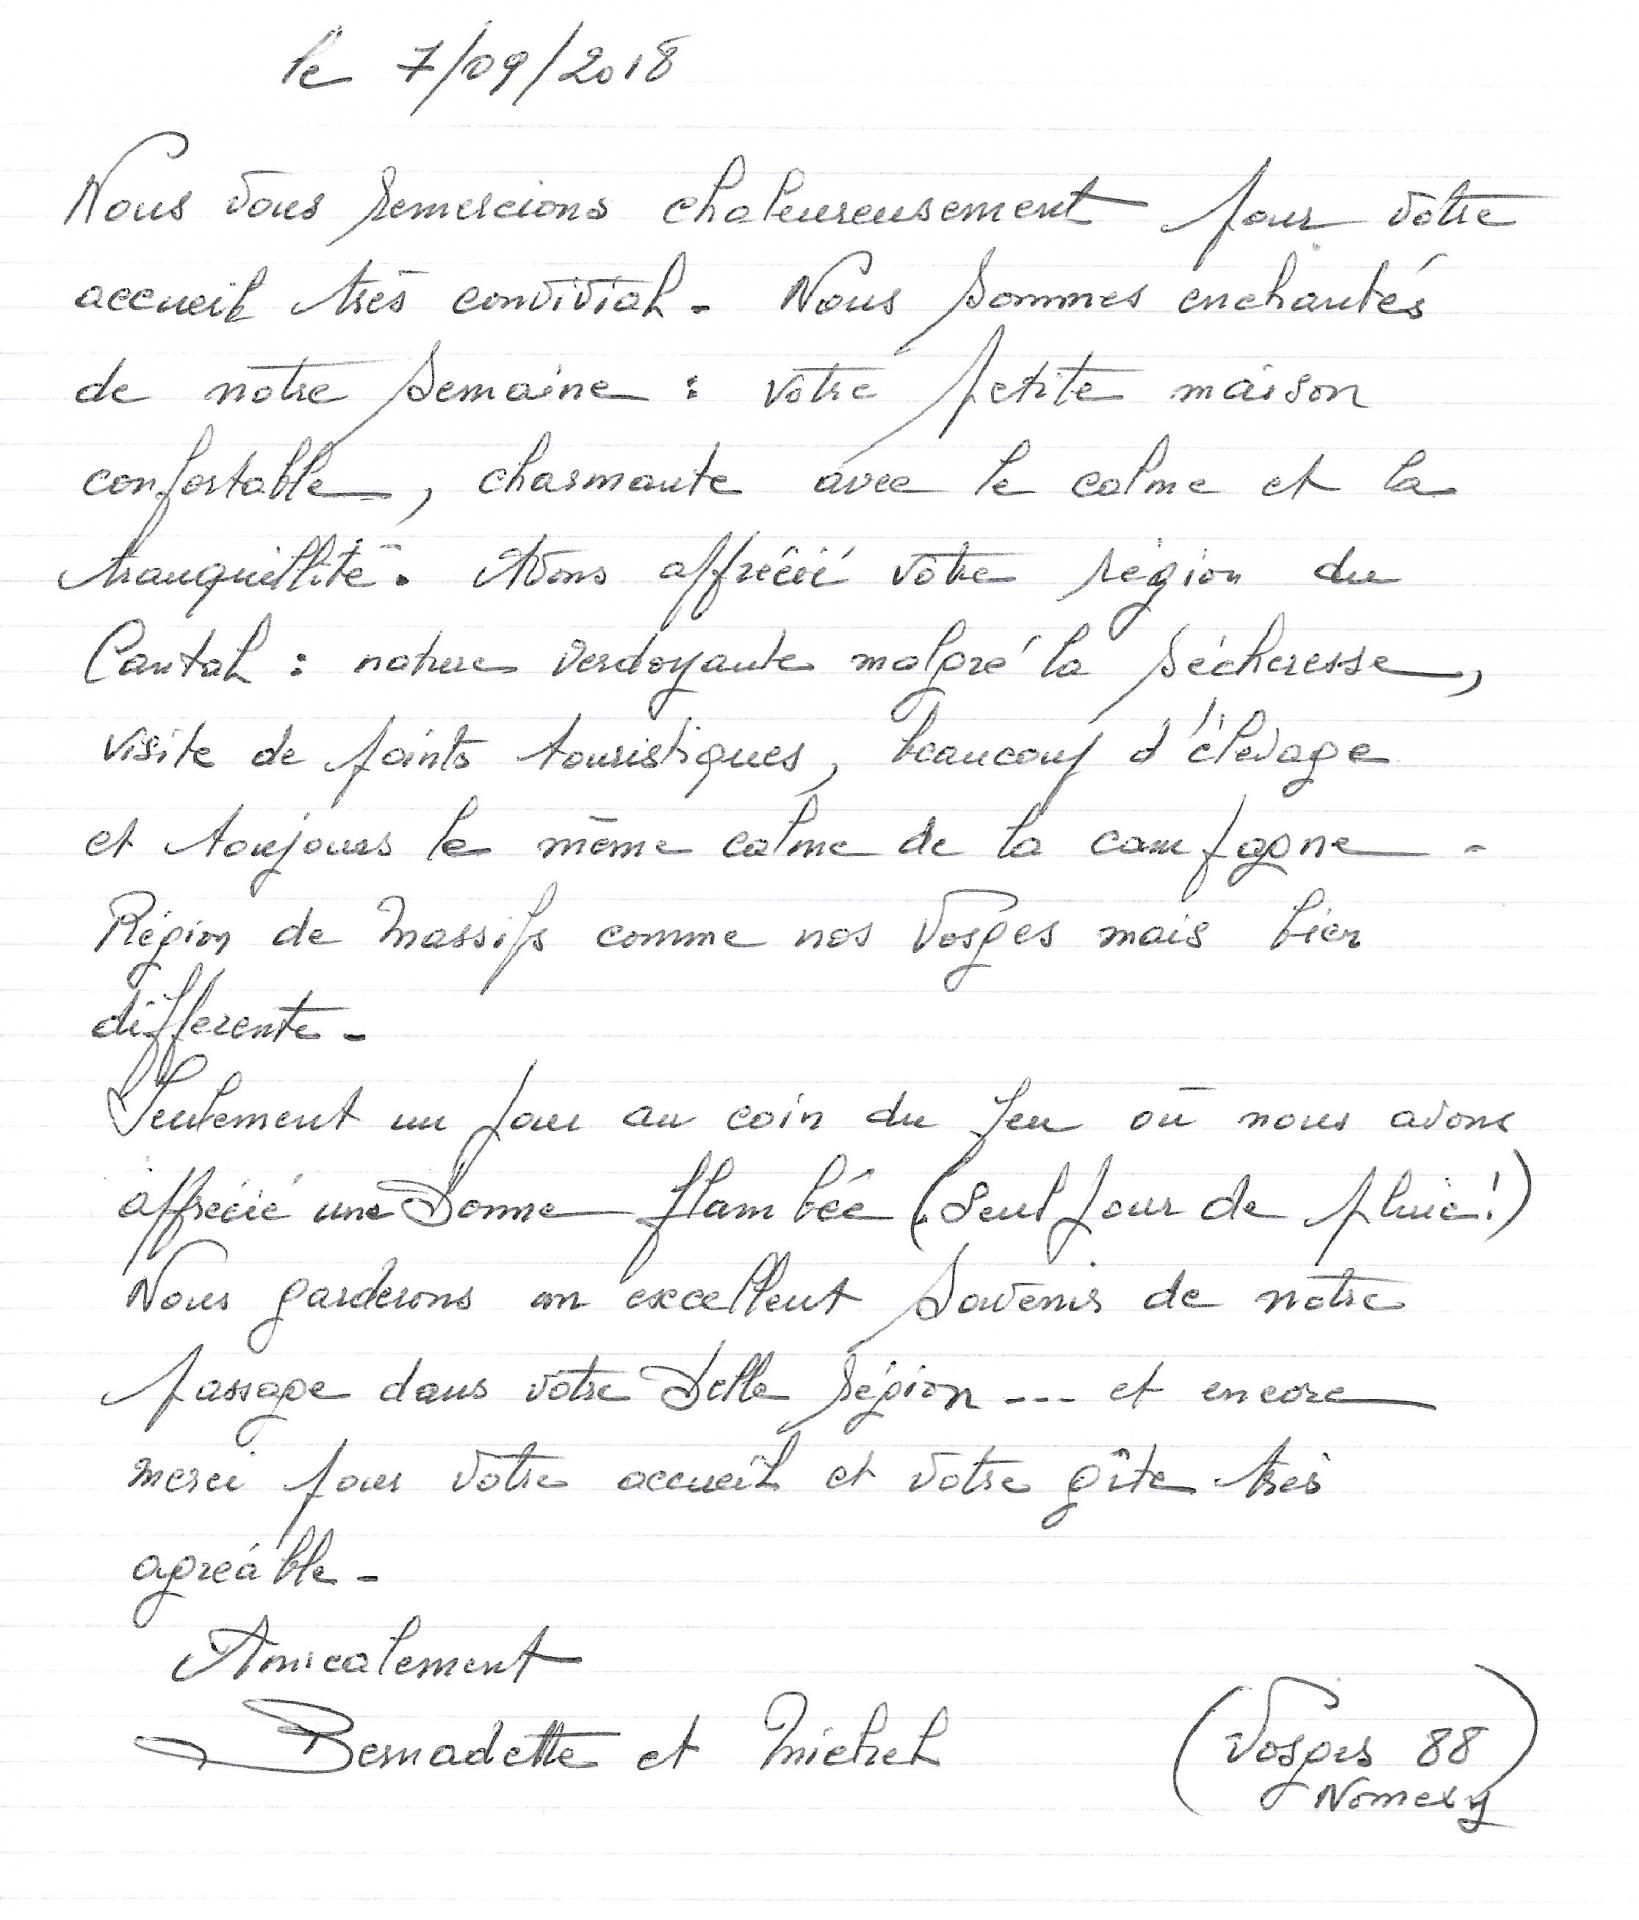 le 7/09/2018
Nous vous remercions chaleureusement pour votre
accueil très convivial. Nous sommes enchantés
de notre semaine : votre petite maison
confortable, charmante avec le calme et la
tranquillité. Avons apprécié votre région du
Cantal : nature verdoyante malgré la sécheresse,
visite de points touristiques, beaucoup d'élevage
et toujours le même calme de la campagne.
Région de Massifs comme nos Vosges mais bien
différente.
Seulement un jour au coin du feu où nous avons
apprécié une bonne flambée (seul jour de pluie!)
Nous garderons un excellent souvenir de notre
passage dans votre belle région --- et encore
merci pour votre accueil et votre gîte très
agréable.
Amicalement
Bernadette et Michel (Vosges 88)
Nomexy